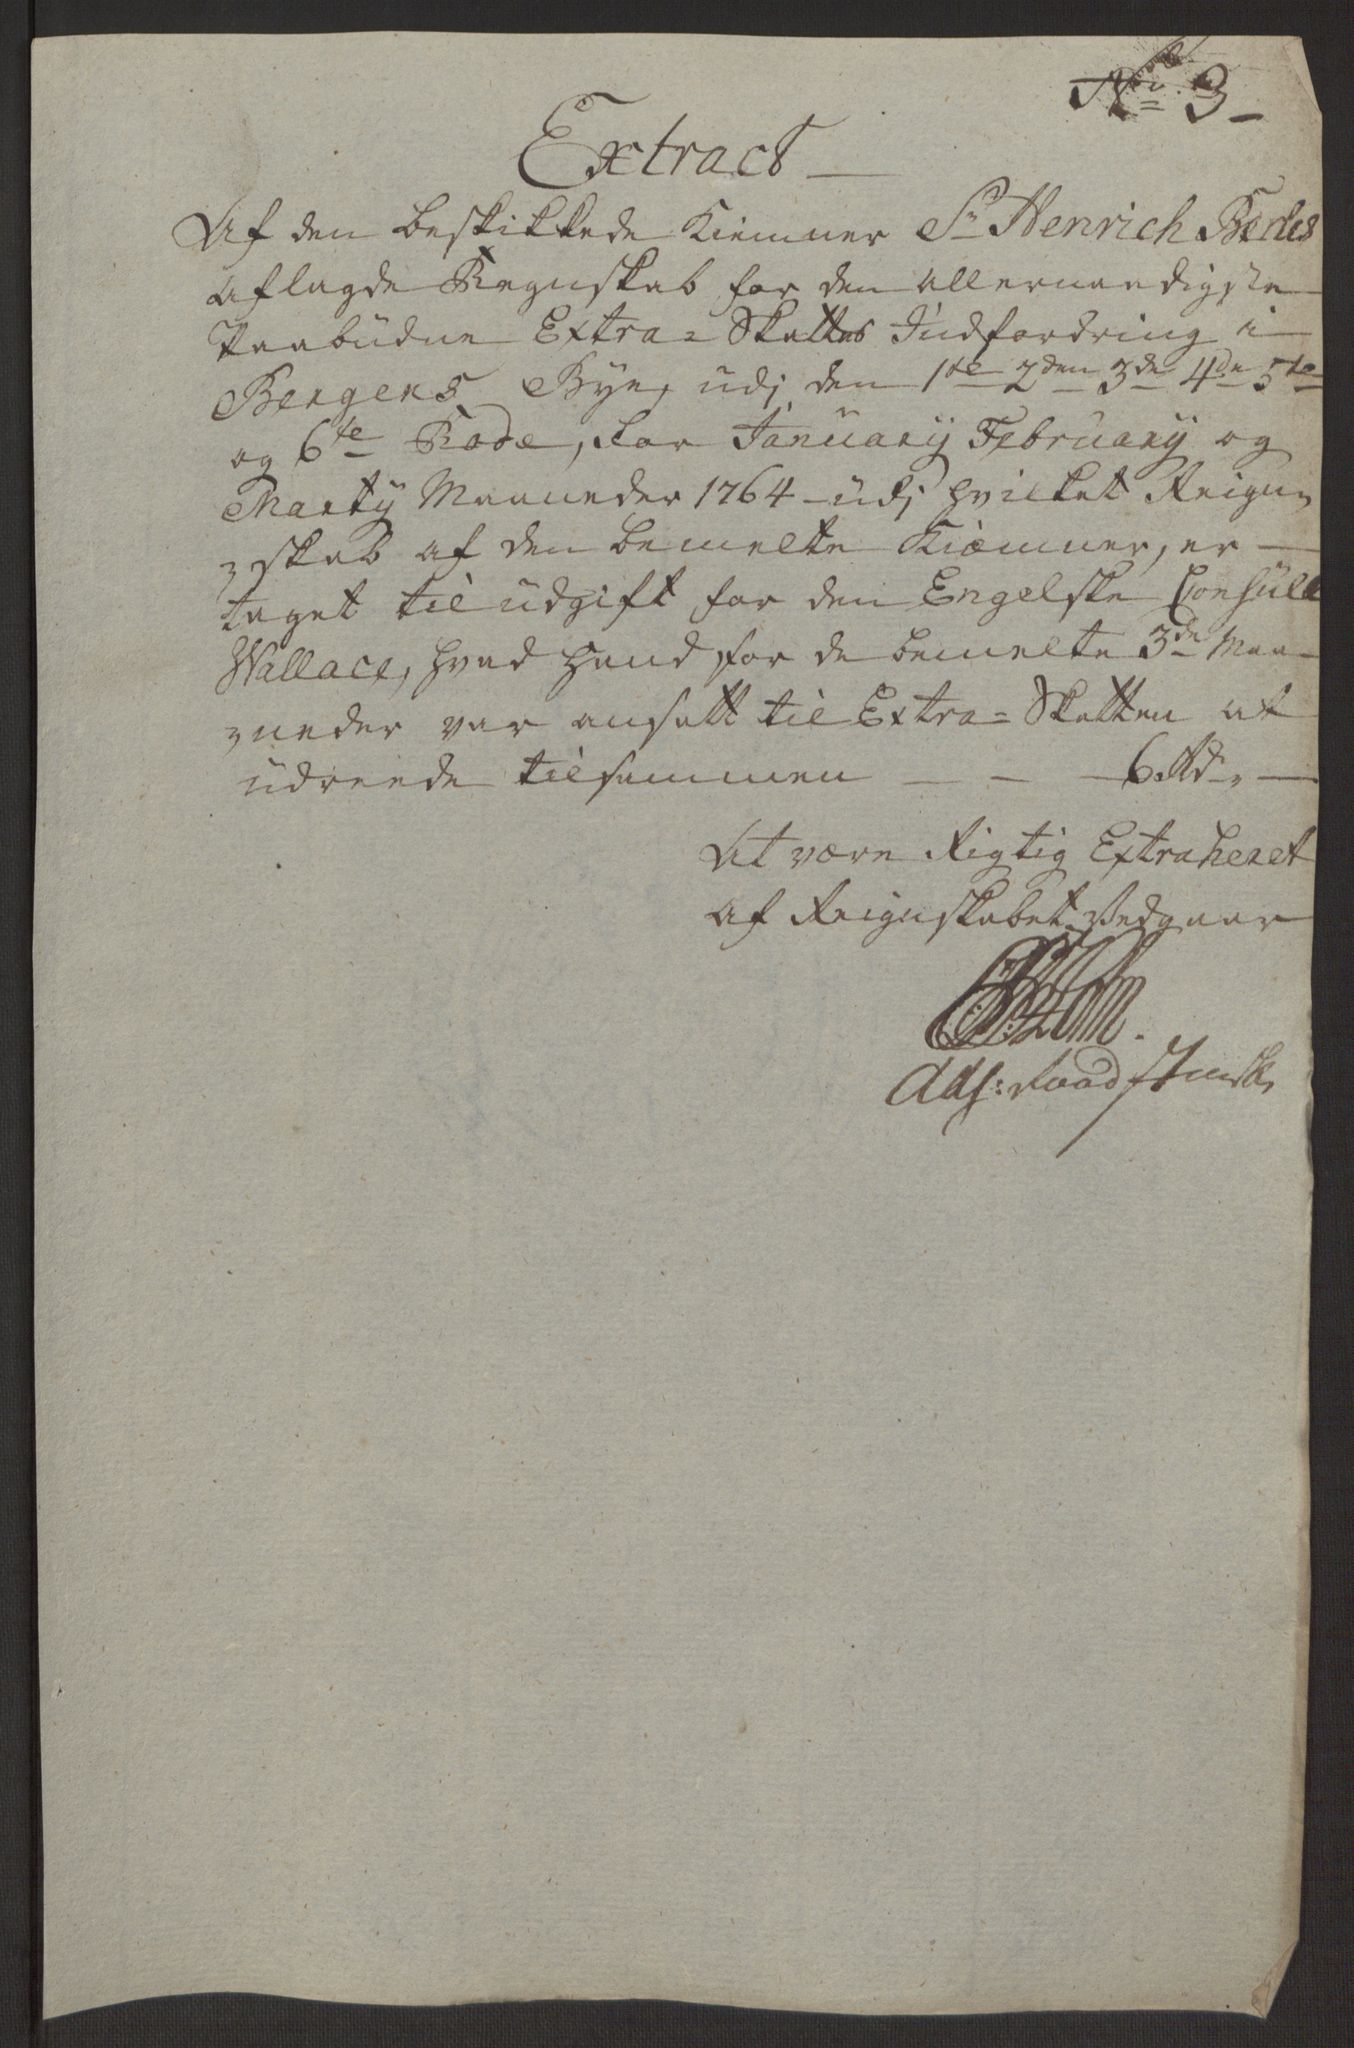 No. 3
Extract
Af den beskikkede Kiemner Sr Henrich
aflagde Regnskab for den allernaadigste
Paabudne Extra-Skattes Indfordring i
Bergens Bye, udj den 1te 2den 3de 4de 5te
og 6te Rode, for January February og
Marty Maaneder 1764 - udj hvilket Reign-
skab af den bemelte Kiæmner, er
taget til udgift for den Engelske Consull
Wallace, hvad hand for de bemelte 3de Maa-
neder var ansatt til Extra-Skatten at
udreede tilsammen - - 6 Rd.
At være Rigtig Extraheret
af Reignskabet Vedgaar